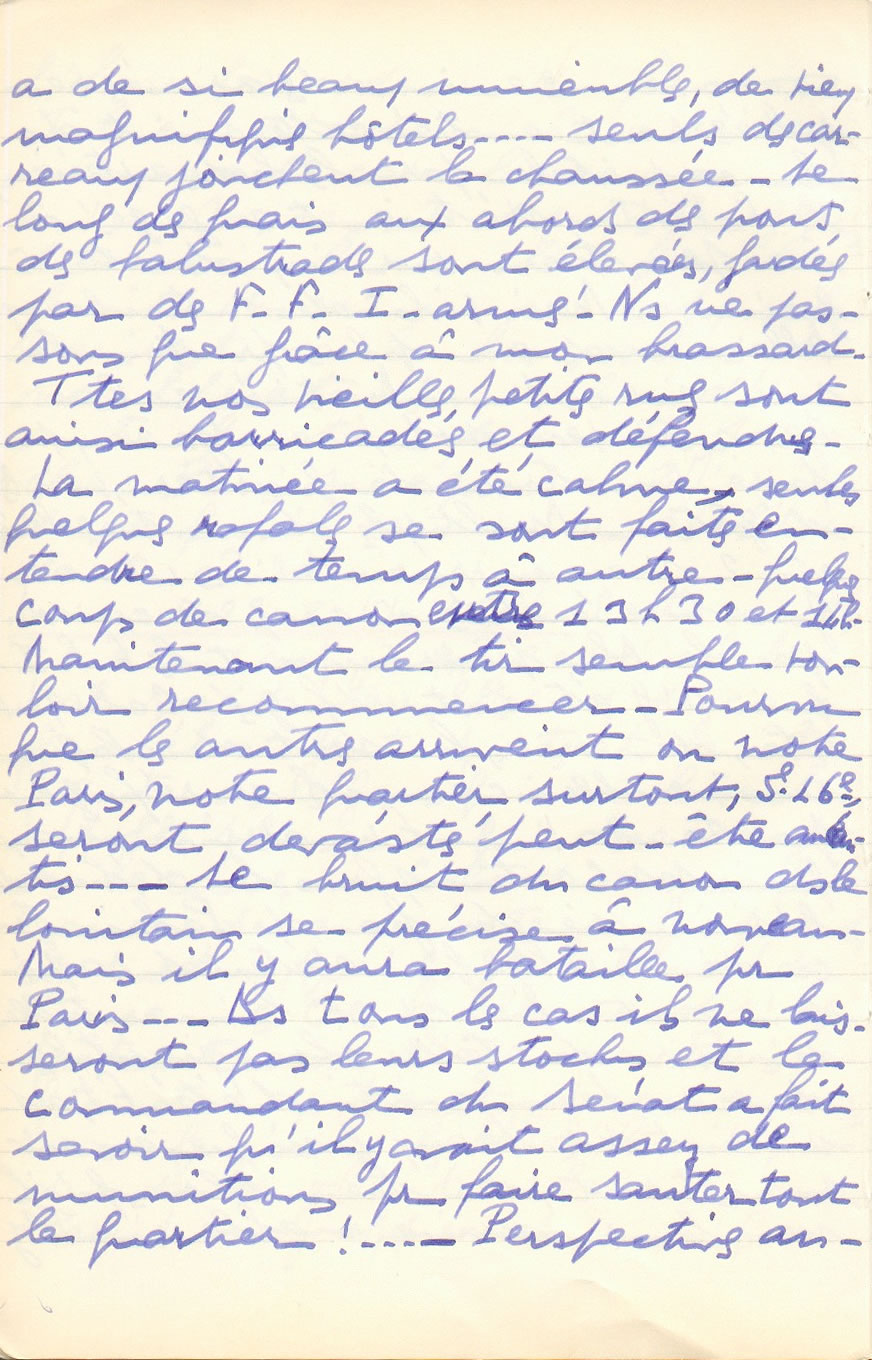 a de si beaux immeubles, de vieux
magnifiques hôtels.... seuls des car-
reaux jonchent la chaussée - Le
long des quais aux abords des ponts,
des balustrades sont élevées, gardés
par des F.F.I. armés - Ns ne pas-
sons que grâce à mon brassard.
Ttes nos vieilles petites rues sont
ainsi barricadées et défendues -
La matinée a été calme, seules
quelques rafales se sont faites en-
tendre de temps à autre - quelques
coups de canon entre 13h30 et 14h.
Maintenant le tir semble vou-
loir recommencer - Pourvu
que les autres arrivent ou notre
Paris, notre quartier surtout, 5e et 6e,
seront dévastés peut-être anéan-
tis --- Le bruit du canon ds le
lointain se précise à nouveau -
Mais il y aura bataille pr
Paris --- Ds tous les cas ils ne lais-
seront pas leurs stocks et le
commandant du Sénat a fait
savoir qu'il y avait assez de
munitions pr faire sauter tout
le quartier !.... Perspectives an-